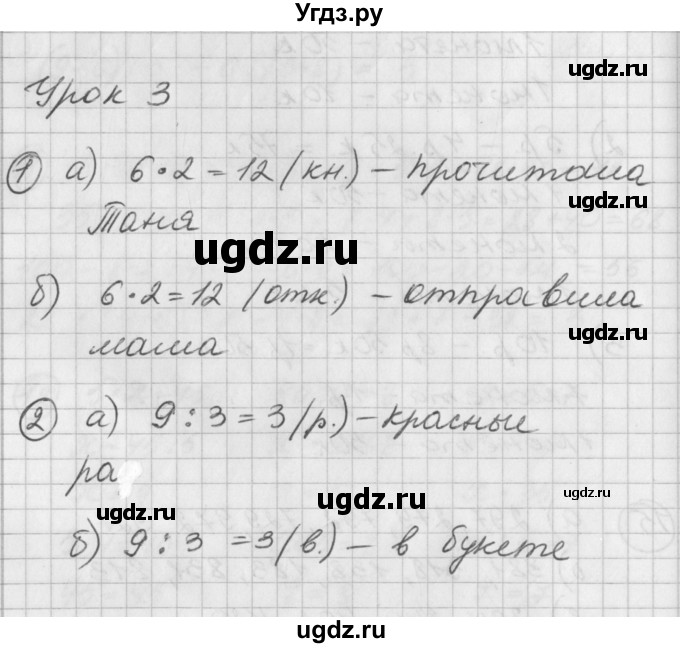 Угдз.ру
Урок 3
ugdz.ru
ugdz.ru
1 а) 6·2=12 (кн.) – прочитала
Таня
ugdz.ru
ugdz.ru
б) 6·2=12 (отк.) – отправила
ugdz.ru
мама
2 а) 9:3=3 (р.) – красные
ра
ugdz.ru
ugdz.ru
ugdz.ru
б) 9:3=3 (в.) – в букете
ugdz.ru